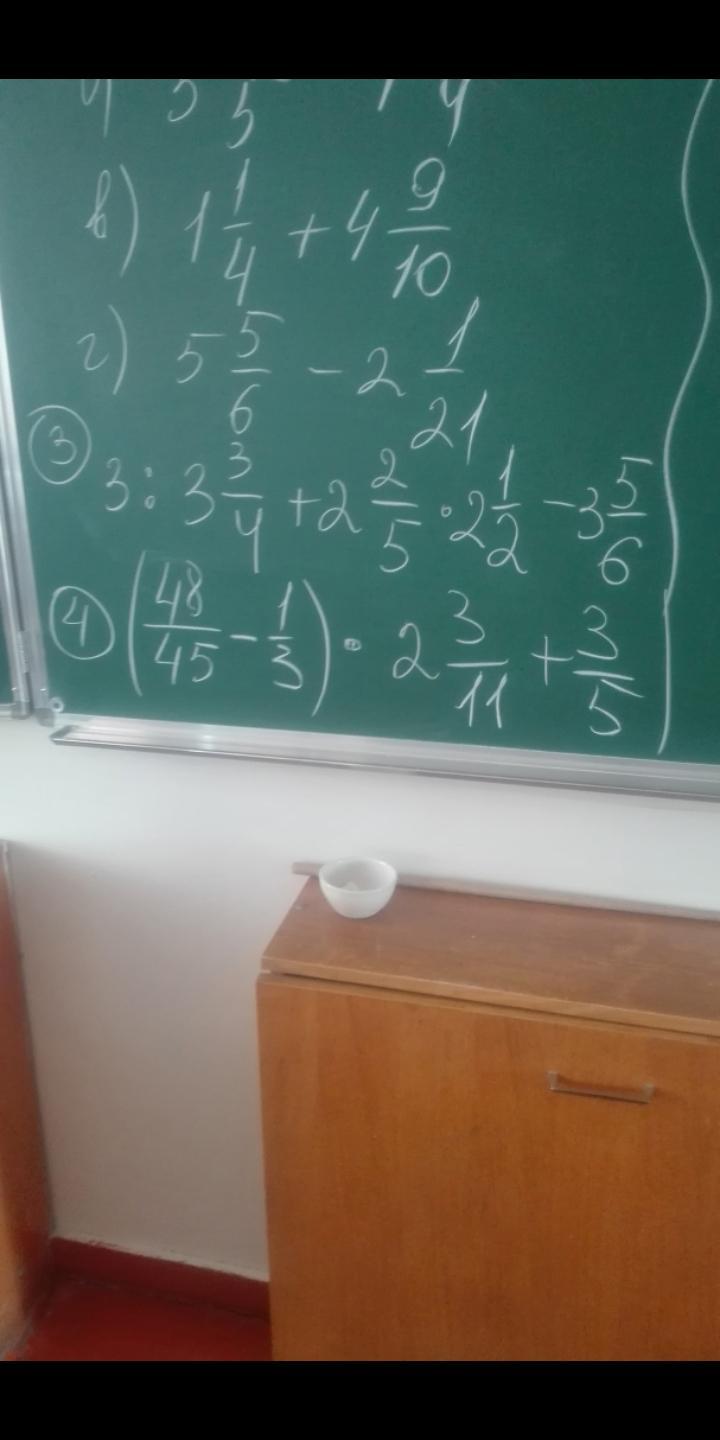 в) 1 1/4 + 4 9/10
г) 5 5/6 - 2 1/21
③ 3 : 3 3/4 + 2 2/5 · 2 1/2 - 3 5/6
④ (48/45 - 1/3) · 2 3/11 + 3/5